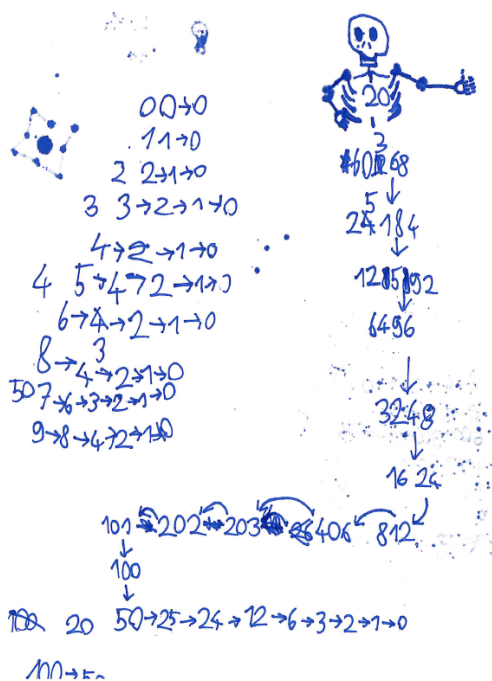 0 0→0
1 1→0
2 2→1→0
3 3→2→1→0
4→2→1→0
4 5→4→2→1→0
6→3→2→1→0
8→4→2→1→0
50 7→6→3→2→1→0
9→8→4→2→1→0
20
↓
↓
↓
6496
↓
3248
↓
1624
101 ← 202 ← 203 ← 406 ← 812
↓
100
↓
20 50→25→24→12→6→3→2→1→0
100→50